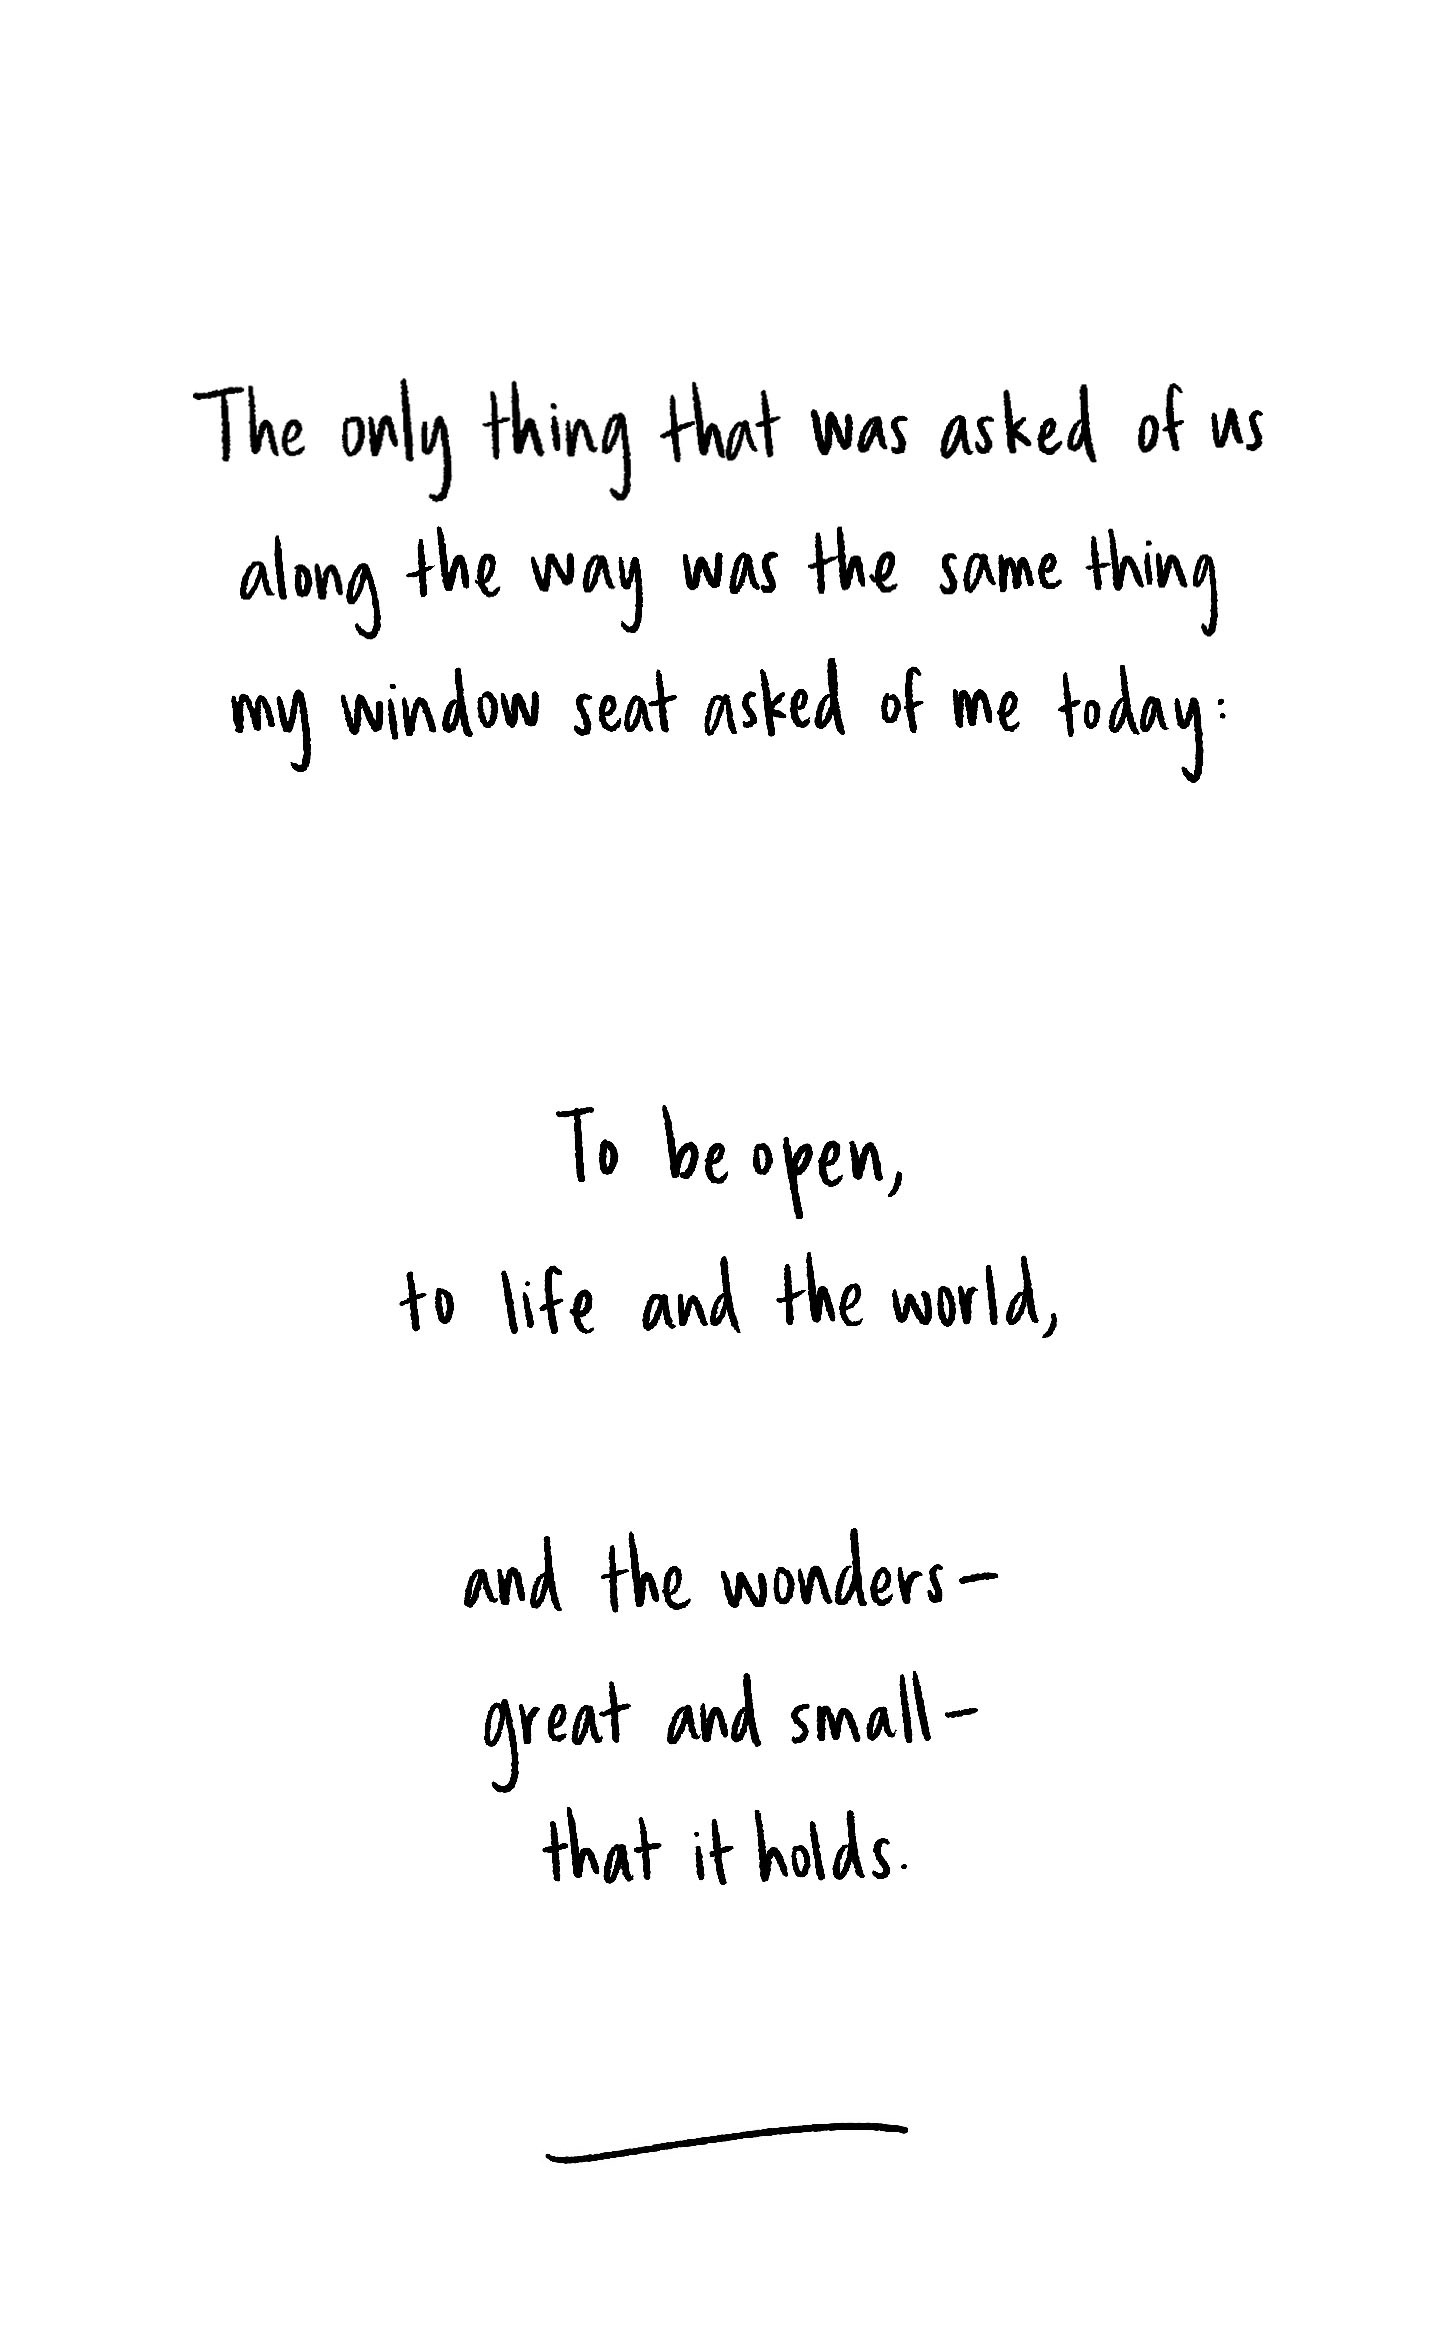 The only thing that was asked of us
along the way was the same thing
my window seat asked of me today:
To be open,
to life and the world,
and the wonders—
great and small—
that it holds.